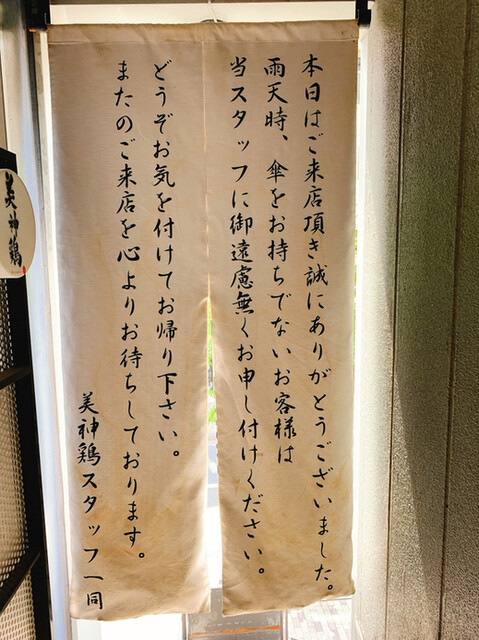 本日はご来店頂き誠にありがとうございました。
雨天時、傘をお持ちでないお客様は
当スタッフに御遠慮無くお申し付けください。
どうぞお気を付けてお帰り下さい。
またのご来店を心よりお待ちしております。
美神鶏スタッフ一同
美神鶏